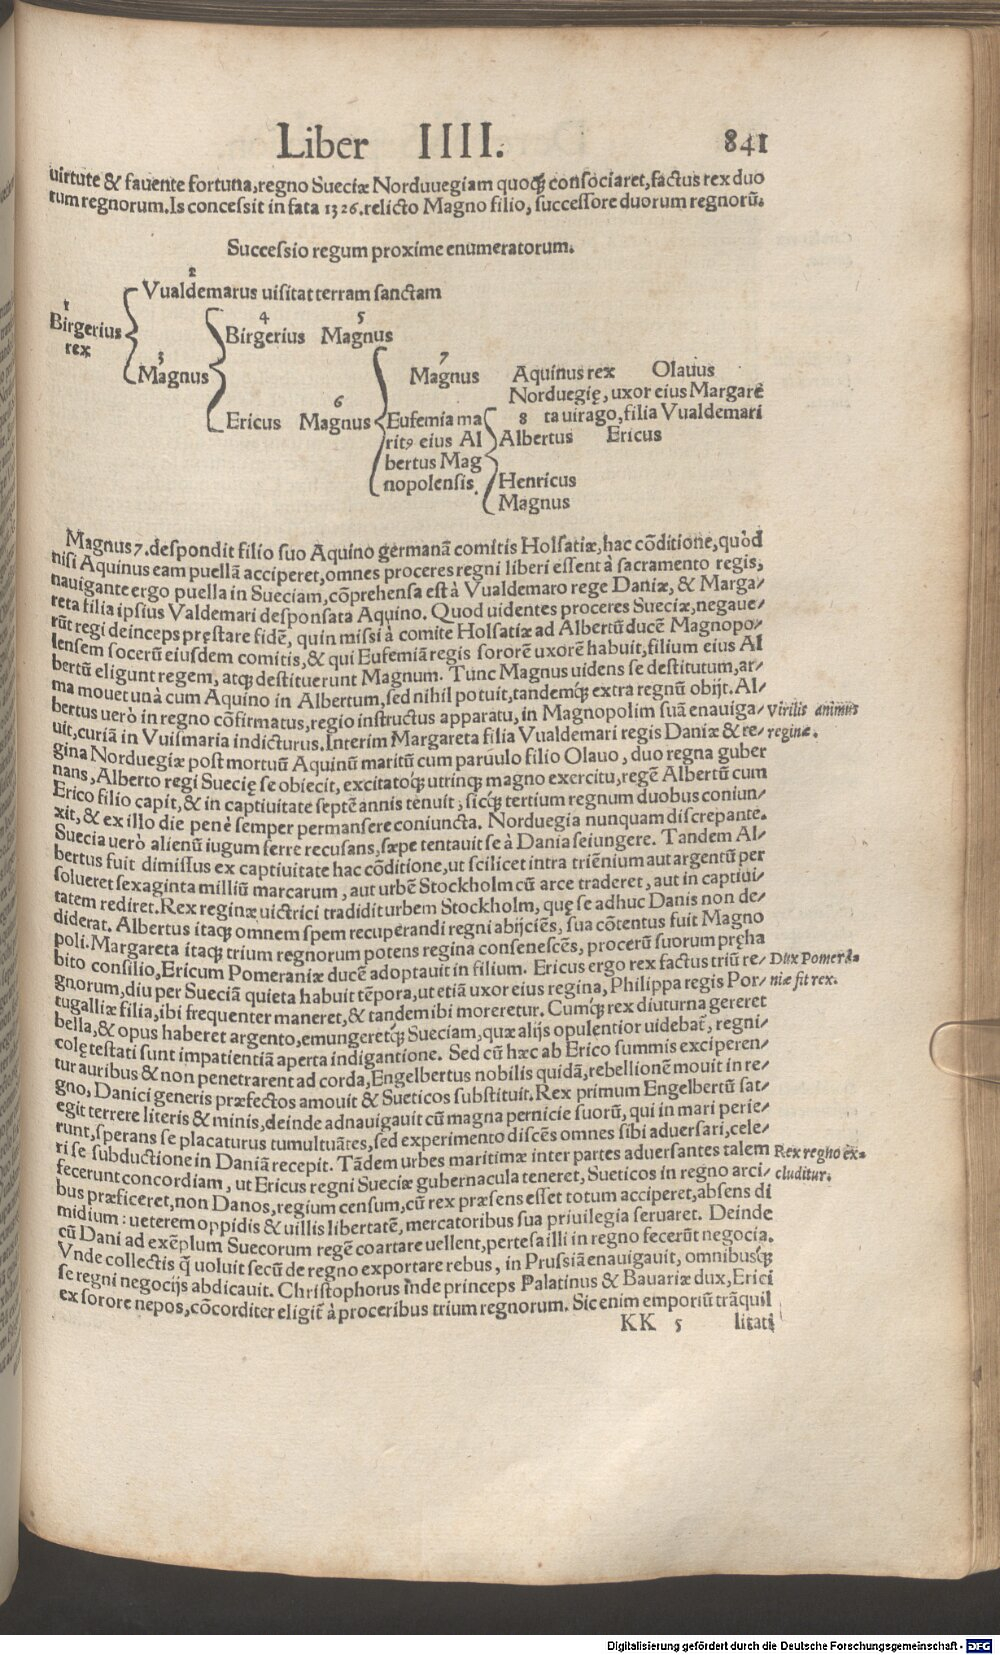 Liber IIII. 841
uirtute & fauente fortuna, regno Sueciæ Norduuegiam quoq; consociaret, factus rex duo
rum regnorum. Is concessit in fata 1326. relicto Magno filio, successore duorum regnorũ.
Successio regum proxime enumeratorum.
2
Vualdemarus uisitat terram sanctam
1
Birgerius
rex
4 5
Birgerius Magnus
3
Magnus
7
Magnus Aquinus rex Olauus
Norduegię, uxor eius Margarẽ
6
Ericus Magnus Eufemia ma 8 ta uirago, filia Vualdemari
rit9 eius Al Albertus Ericus
bertus Mag
nopolensis. Henricus
Magnus
Magnus 7. despondit filio suo Aquino germanã comitis Holsatiæ, hac cõditione, quòd
nisi Aquinus eam puellã acciperet, omnes proceres regni liberi essent à sacramento regis,
nauigante ergo puella in Sueciam, cõprehensa est à Vualdemaro rege Daniæ, & Marga-
reta filia ipsius Valdemari desponsata Aquino. Quod uidentes proceres Sueciæ, negaue-
rũt regi deinceps pręstare fidẽ, quin missi à comite Holsatiæ ad Albertũ ducẽ Magnopo-
lensem socerũ eiusdem comitis, & qui Eufemiã regis sororẽ uxorẽ habuit, filium eius Al
bertũ eligunt regem, atq; destituerunt Magnum. Tunc Magnus uidens se destitutum, ar-
ma mouet unà cum Aquino in Albertum, sed nihil potuit, tandemq; extra regnũ obijt. Al-
bertus uerò in regno cõfirmatus, regio instructus apparatu, in Magnopolim suã enauiga- Virilis animus
uit, curiã in Vuismaria indicturus. Interim Margareta filia Vualdemari regis Daniæ & re- reginæ.
gina Norduegiæ post mortuũ Aquinũ maritũ cum paruulo filio Olauo, duo regna guber
nans, Alberto regi Suecię se obiecit, excitatoq; utrinq; magno exercitu, regẽ Albertũ cum
Erico filio capit, & in captiuitate septẽ annis tenuit, sicq; tertium regnum duobus coniun-
xit, & ex illo die penè semper permansere coniuncta. Norduegia nunquam discrepante.
Suecia uerò alienũ iugum ferre recusans, sæpe tentauit se à Dania seiungere. Tandem Al-
bertus fuit dimissus ex captiuitate hac cõditione, ut scilicet intra triẽnium aut argentũ per
solueret sexaginta milliũ marcarum, aut urbẽ Stockholm cũ arce traderet, aut in captiui-
tatem rediret. Rex reginæ uictrici tradidit urbem Stockholm, quę se adhuc Danis non de-
diderat. Albertus itaq; omnem spem recuperandi regni abijciẽs, sua cõtentus fuit Magno
poli. Margareta itaq; trium regnorum potens regina consenescẽs, procerũ suorum pręha
bito consilio, Ericum Pomeraniæ ducẽ adoptauit in filium. Ericus ergo rex factus triũ re- Dux Pomera-
gnorum, diu per Sueciã quieta habuit tẽpora, ut etiã uxor eius regina, Philippa regis Por- niæ fit rex.
tugalliæ filia, ibi frequenter maneret, & tandem ibi moreretur. Cumq; rex diuturna gereret
bella, & opus haberet argento, emungeretq; Sueciam, quæ alijs opulentior uidebat̃, regni-
colę testati sunt impatientiã aperta indigantione. Sed cũ hæc ab Erico summis exciperen-
tur auribus & non penetrarent ad corda, Engelbertus nobilis quidã, rebellionẽ mouit in re-
gno, Danici generis præfectos amouit & Sueticos substituit. Rex primum Engelbertũ sat-
egit terrere literis & minis, deinde adnauigauit cũ magna pernicie suorũ, qui in mari perie-
runt, sperans se placaturus tumultuãtes, sed experimento discẽs omnes sibi aduersari, cele-
ri se subductione in Daniã recepit. Tãdem urbes maritimæ inter partes aduersantes talem Rex regno ex-
fecerunt concordiam, ut Ericus regni Sueciæ gubernacula teneret, Sueticos in regno arci- cluditur.
bus præficeret, non Danos, regium censum, cũ rex præsens esset totum acciperet, absens di
midium: ueterem oppidis & uillis libertatẽ, mercatoribus sua priuilegia seruaret. Deinde
cũ Dani ad exẽplum Suecorum regẽ coartare uellent, pertesa illi in regno fecerũt negocia.
Vnde collectis q̃ uoluit secũ de regno exportare rebus, in Prussiã enauigauit, omnibusq;
se regni negocijs abdicauit. Christophorus inde princeps Palatinus & Bauariæ dux, Erici
ex sorore nepos, cõcorditer eligit̃ à proceribus trium regnorum. Sic enim emporiũ trãquil
KK 5 litati
Digitalisierung gefördert durch die Deutsche Forschungsgemeinschaft - DFG